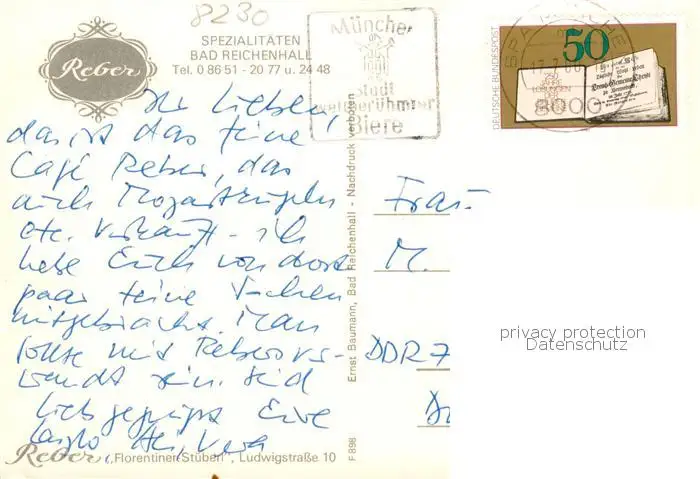 8230
Reber
SPEZIALITÄTEN
BAD REICHENHALL
Tel. 0 86 51 - 20 77 u. 24 48
Münche
Stadt
weltberühmter
Biere
DEUTSCHE BUNDESPOST
50
250 JAHRE
LOSUNGEN
8000
Ihr Lieben,
das ist das feine
Café Reber, das
auch Mozartkugeln
etc. verkauft - ich
habe Euch von dort
paar feine Sachen
mitgebracht. Man
sollte mit Rebers ver-
wandt sein. Seid
lieb gegrüßt Eure
Reber „Florentiner Stüberl", Ludwigstraße 10
F 898 Ernst Baumann, Bad Reichenhall - Nachdruck verboten
Frau
M.
DDR 7
privacy protection
Datenschutz